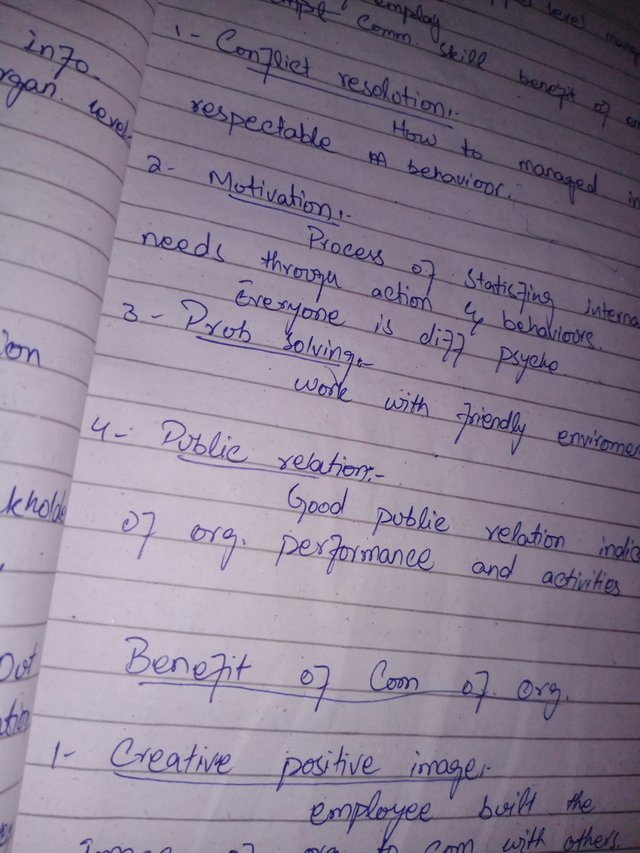 info.
organ. level
ion
Out
employ
level
Comm. skill benefit of
1- Conflict resolution:-
How to managed in
respectable behavioor.
2- Motivation:-
Process of statisfing interna
needs through action & behavioors.
Everyone is diff psyche
3- Prob solving:-
work with friendly enviromen
4- Public relation:-
Good public relation indic
of org. performance and activities
Benefit of Com of org.
1- Creative positive image:-
employee built the
image of org to com with others